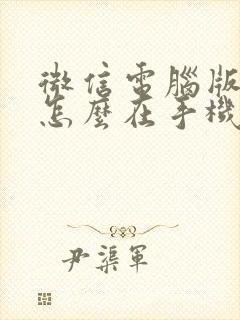 微信電腦版
怎麼在手機
尹渠軍